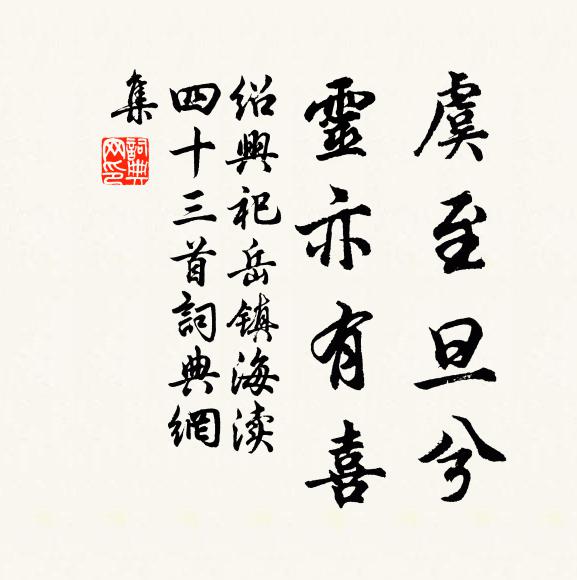 虞至旦兮
靈亦有喜
绍興祀岳鎮海渎
四十三首詞典網
集
詞典网印